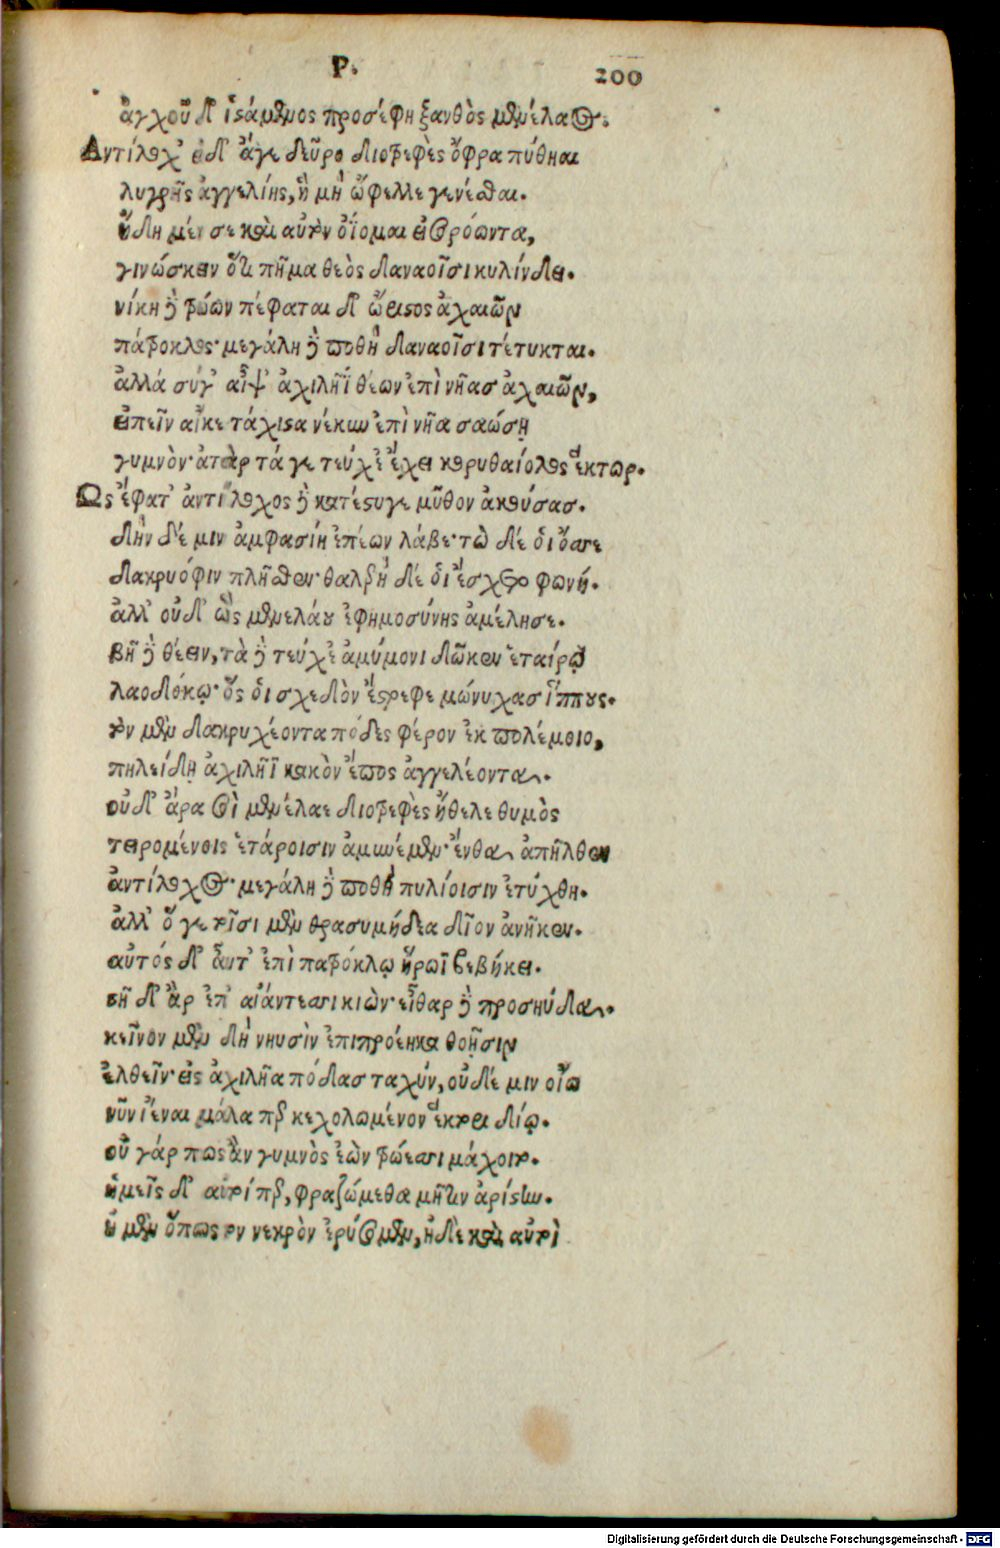 Ρ.
200
ἀγχοῦ δ' ἱστάμενος προσέφη ξανθὸς μενέλαος.
Αντίλοχ' εἰ δ' ἄγε δεῦρο διοτρεφὲς ὄφρα πύθηαι
λυγρῆς ἀγγελίης, ἣ μὴ ὤφελλε γενέσθαι.
ἤδη μέν σε καὶ αὐτὸν ὀΐομαι εἰσορόωντα,
γινώσκειν ὅτι πῆμα θεὸς δαναοῖσι κυλίνδει.
νίκη δὲ τρώων πέφαται δ' ὤριστος ἀχαιῶν
πάτροκλος· μεγάλη δὲ ποθὴ δαναοῖσι τέτυκται.
ἀλλὰ σύγ' αἶψ' ἀχιλῆϊ θέων ἐπὶ νῆας ἀχαιῶν,
εἰπεῖν αἴκε τάχιστα νέκυν ἐπὶ νῆα σαώσῃ
γυμνὸν· ἀτὰρ τά γε τεύχε' ἔχει κορυθαίολος ἕκτωρ.
Ως ἔφατ' ἀντίλοχος δὲ κατέστυγε μῦθον ἀκούσας.
δὴν δέ μιν ἀμφασίη ἐπέων λάβε· τὼ δέ οἱ ὄσσε
δακρυόφιν πλῆσθεν· θαλερὴ δέ οἱ ἔσχετο φωνή.
ἀλλ' οὐδ' ὣς μενελάου ἐφημοσύνης ἀμέλησε.
βῆ δὲ θέειν, τὰ δὲ τεύχε' ἀμύμονι δῶκεν ἑταίρῳ
λαοδόκῳ· ὅς οἱ σχεδὸν ἔστρεφε μώνυχας ἵππους.
τὸν μὲν δακρυχέοντα πόδες φέρον ἐκ πολέμοιο,
πηλείδῃ ἀχιλῆϊ κακὸν ἔπος ἀγγελέοντα.
οὐδ' ἄρα σοὶ μενέλαε διοτρεφὲς ἤθελε θυμὸς
τειρομένοις ἑτάροισιν ἀμυνέμεν· ἔνθεν ἀπῆλθεν
ἀντίλοχος· μεγάλη δὲ ποθὴ πυλίοισιν ἐτύχθη.
ἀλλ' ὅ γε τοῖσι μὲν θρασυμήδεα δῖον ἀνῆκεν.
αὐτός δ' αὖτ' ἐπὶ πατρόκλῳ ἥρωϊ βεβήκει.
στῆ δ' ἂρ ἐπ' αἰάντεσσι κιὼν· εἶθαρ δὲ προσηύδα.
κεῖνον μὲν δὴ νηυσὶν ἐπιπροέηκα θοῇσιν
ἐλθεῖν· εἰς ἀχιλῆα πόδας ταχύν, οὐδέ μιν οἴω
νῦν ἰέναι μάλα περ κεχολωμένον ἕκτορι δίῳ.
οὐ γάρ πως ἂν γυμνὸς ἐὼν τρώεσσι μάχοιτο.
ἡμεῖς δ' αὐτοί περ, φραζώμεθα μῆτιν ἀρίστην.
ἠ μὲν ὅπως τὸν νεκρὸν ἐρύσομεν, ἠδὲ καὶ αὐτοὶ
Digitalisierung gefördert durch die Deutsche Forschungsgemeinschaft - DFG